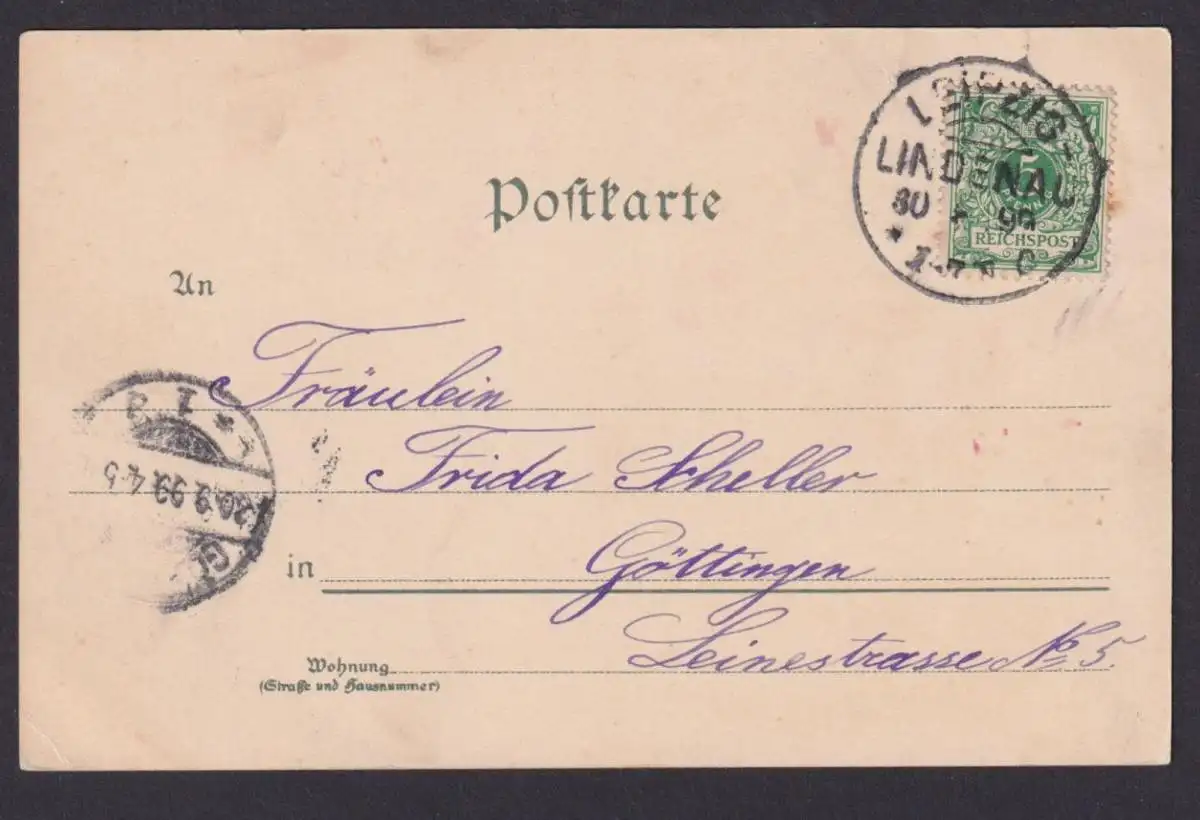 LEIPZIG-
LINDENAU
99
5
REICHSPOST
Postkarte
An
Fräulein
Frida Scheller
in Göttingen
Leinestrasse No 5.
Wohnung
(Straße und Hausnummer)
9 99 4-5